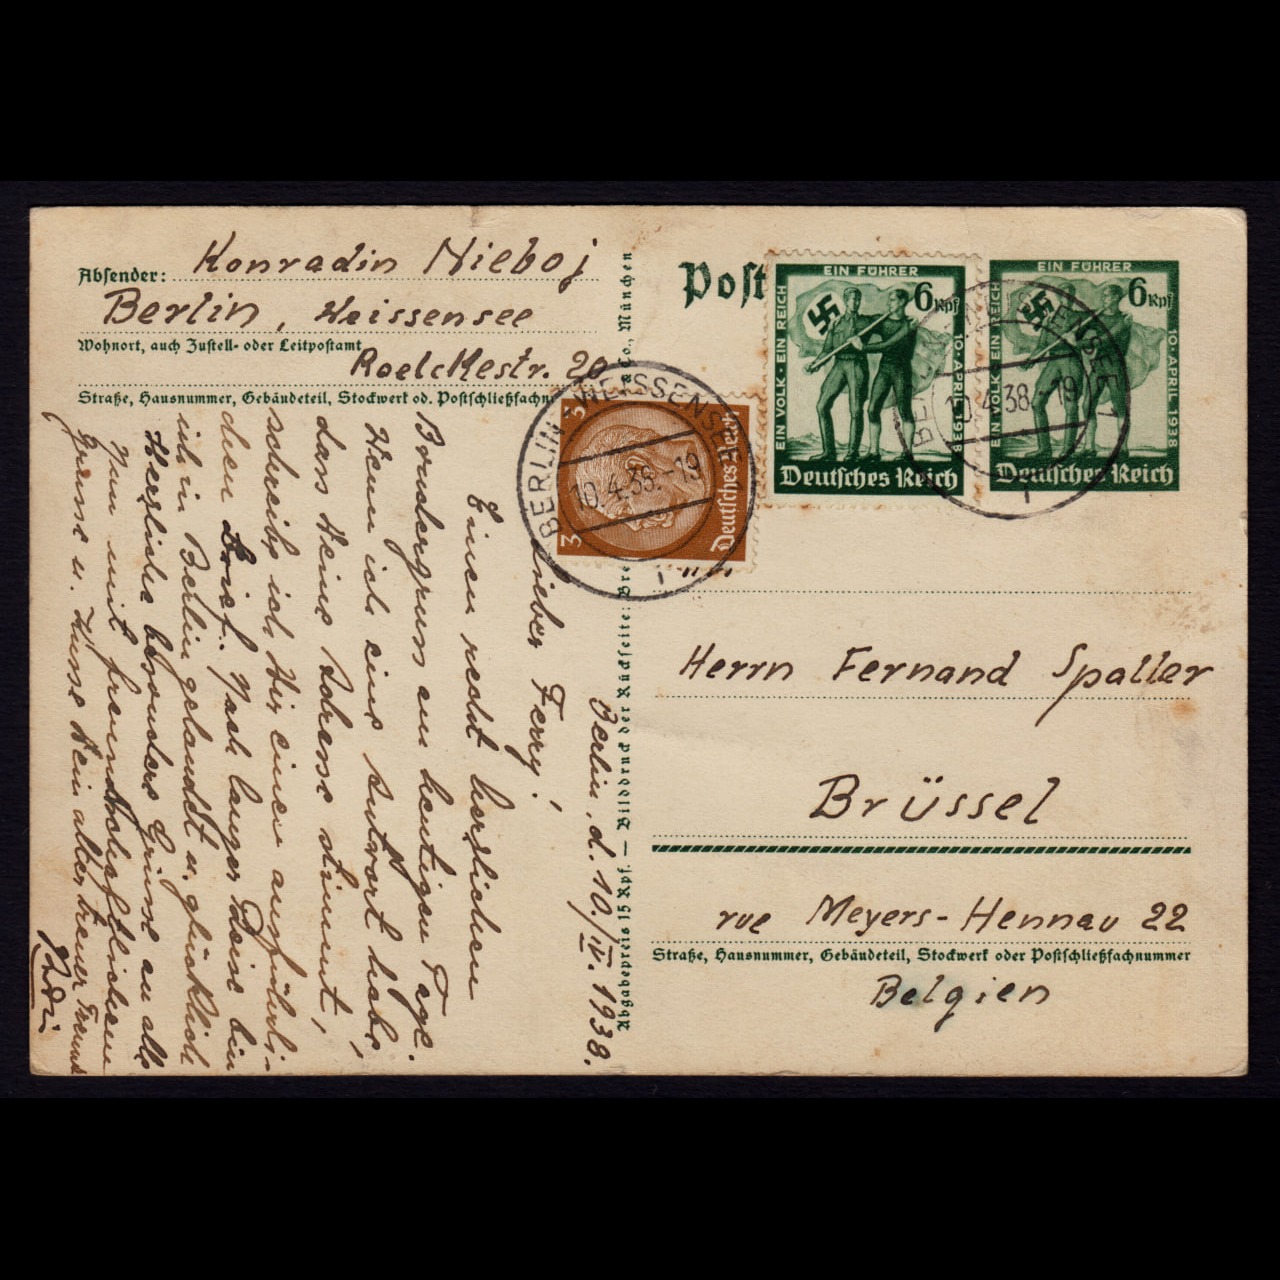 Absender: Konradin Nieboj
Berlin, Weissensee
Wohnort, auch Zustell- oder Leitpostamt
Roelckestr. 20
Straße, Hausnummer, Gebäudeteil, Stockwerk od. Postschließfachn
Post
EIN FÜHRER
EIN VOLK · EIN REICH
6 Rpf
10. APRIL 1938
Deutsches Reich
EIN FÜHRER
EIN VOLK · EIN REICH
6 Rpf
10. APRIL 1938
Deutsches Reich
BERLIN-WEISSENSEE 1
10.4.38.-19
3 3
Deutsches Reich
BERLIN-WEISSENSEE
10.4.38.-19
Abgabepreis 15 Rpf. — Bilddruck der Rückseite: Bre & Co., München
Berlin, d. 10./IV. 1938.
Lieber Ferry!
Einen recht herzlichen
Brudergruss am heutigen Tage.
Wenn ich eine Antwort habe,
dass Deine Adresse stimmt,
schreibe ich Dir einen ausführli-
chen Brief. Nach langer Reise bin
ich in Berlin gelandet u. glücklich
Herzliche besonders Grüsse an alle
Nun mit freundschaftlichem
Grusse u. Kusse Dein alter, treuer Freund
Herrn Fernand Spaller
Brüssel
rue Meyers-Hennau 22
Straße, Hausnummer, Gebäudeteil, Stockwerk oder Postschließfachnummer
Belgien